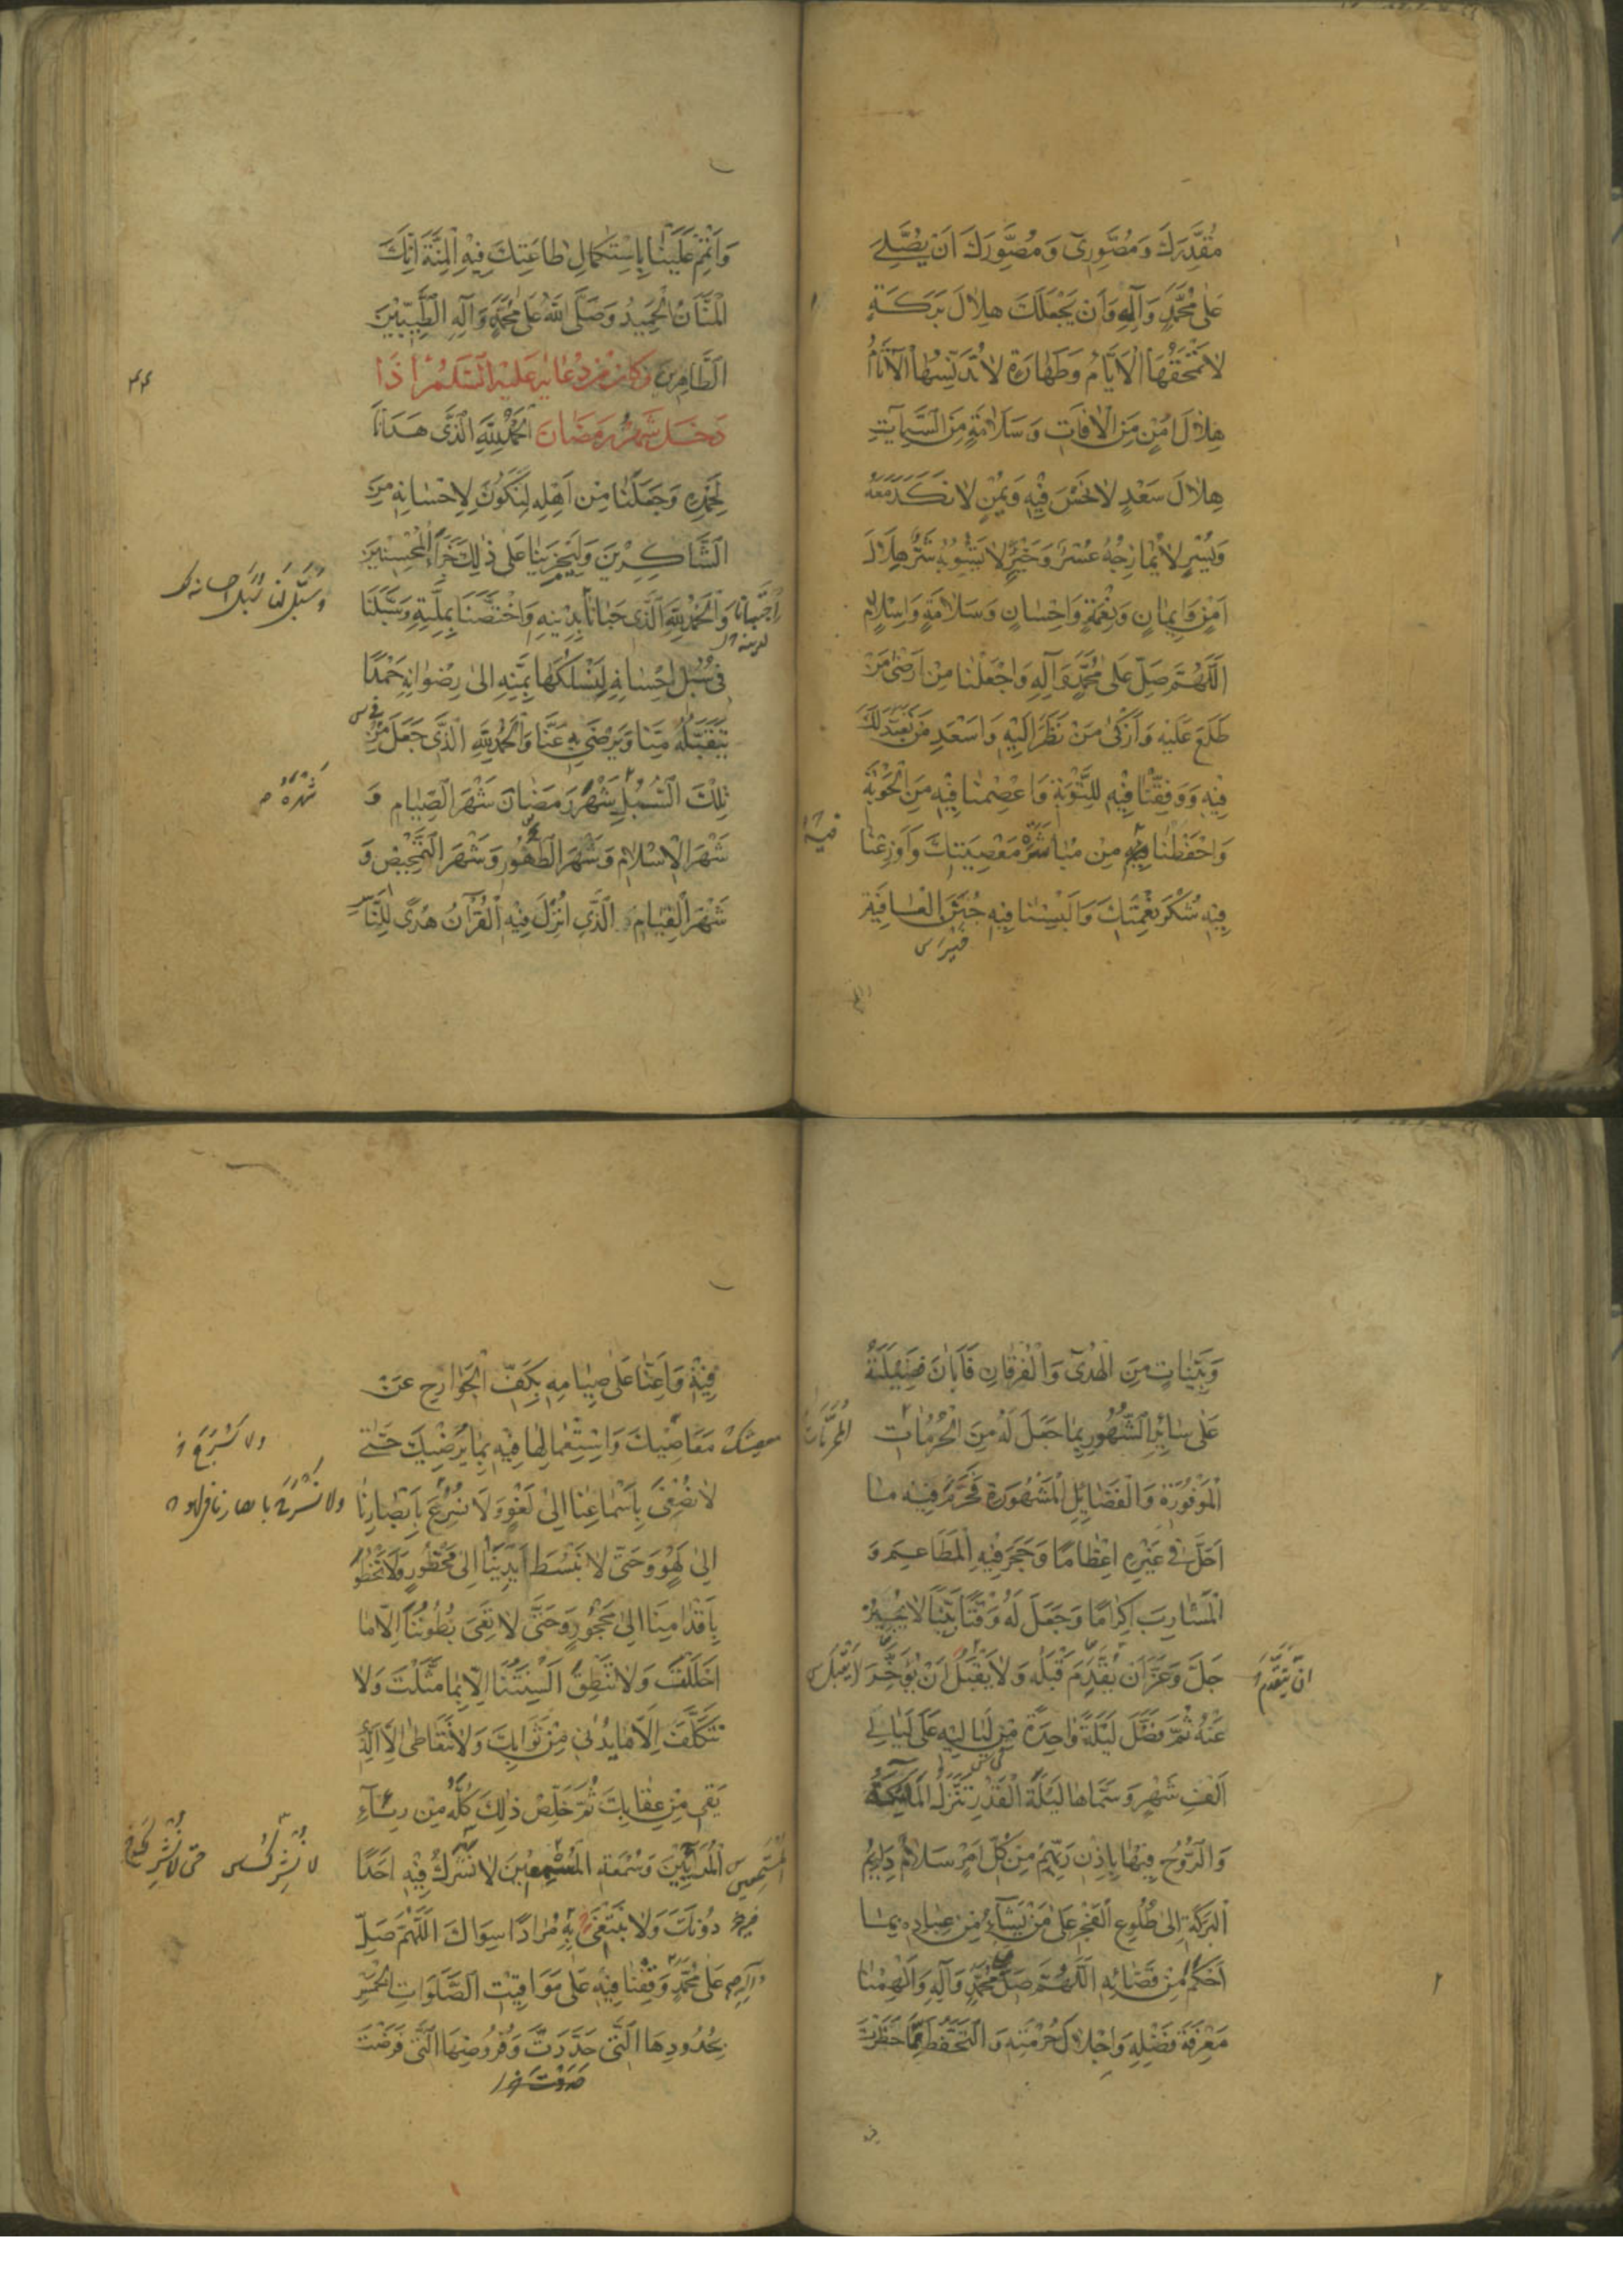 مُقَدِّرَكَ وَمُصَوِّرِي وَمُصَوِّرَكَ اَنْ يُصَلِّيَ
عَلٰى مُحَمَّدٍ وَآلِهِ وَاَنْ يَجْعَلَكَ هِلَالَ بَرَكَةٍ
لَا تَمْحَقُهَا الْاَيَّامُ وَطَهَارَةٍ لَا تُدَنِّسُهَا الْآثَامُ
هِلَالَ اَمْنٍ مِنَ الْآفَاتِ وَسَلَامَةٍ مِنَ السَّيِّآتِ
هِلَالَ سَعْدٍ لَا نَحْسَ فِيهِ وَيُمْنٍ لَا نَكَدَ مَعَهُ
وَيُسْرٍ لَا يُمَازِجُهُ عُسْرٌ وَخَيْرٍ لَا يَشُوبُهُ شَرٌّ هِلَالَ
اَمْنٍ وَاِيمَانٍ وَنِعْمَةٍ وَاِحْسَانٍ وَسَلَامَةٍ وَاِسْلَامٍ
اَللّٰهُمَّ صَلِّ عَلٰى مُحَمَّدٍ وَآلِهِ وَاجْعَلْنَا مِنْ اَرْضٰى مَنْ
طَلَعَ عَلَيْهِ وَاَزْكٰى مَنْ نَظَرَ اِلَيْهِ وَاَسْعَدِ مَنْ تَعَبَّدَ لَكَ
فِيهِ وَوَفِّقْنَا فِيهِ لِلتَّوْبَةِ وَاعْصِمْنَا فِيهِ مِنَ الْحَوْبَةِ
وَاحْفَظْنَا فِيهِ مِنْ مُبَاشَرَةِ مَعْصِيَتِكَ وَاَوْزِعْنَا
فِيهِ شُكْرَ نِعْمَتِكَ وَاَلْبِسْنَا فِيهِ جُنَنَ الْعَافِيَةِ
وَاَتْمِمْ عَلَيْنَا بِاسْتِكْمَالِ طَاعَتِكَ فِيهِ الْمِنَّةَ اِنَّكَ
الْمَنَّانُ الْحَمِيدُ وَصَلَّى اللّٰهُ عَلٰى مُحَمَّدٍ وَآلِهِ الطَّيِّبِينَ
الطَّاهِرِينَ وَكَانَ مِنْ دُعَائِهِ عَلَيْهِ السَّلَامُ اِذَا
دَخَلَ شَهْرُ رَمَضَانَ اَلْحَمْدُ لِلّٰهِ الَّذِي هَدَانَا
لِحَمْدِهِ وَجَعَلَنَا مِنْ اَهْلِهِ لِنَكُونَ لِاِحْسَانِهِ مِنَ
الشَّاكِرِينَ وَلِيَجْزِيَنَا عَلٰى ذٰلِكَ جَزَاءَ الْمُحْسِنِينَ
وَالْحَمْدُ لِلّٰهِ الَّذِي حَبَانَا بِدِينِهِ وَاخْتَصَّنَا بِمِلَّتِهِ وَسَبَّلَنَا
فِي سُبُلِ اِحْسَانِهِ لِنَسْلُكَهَا بِمَنِّهِ اِلٰى رِضْوَانِهِ حَمْدًا
يَتَقَبَّلُهُ مِنَّا وَيَرْضٰى بِهِ عَنَّا وَالْحَمْدُ لِلّٰهِ الَّذِي جَعَلَ مِنْ
تِلْكَ السُّبُلِ شَهْرَ رَمَضَانَ شَهْرَ الصِّيَامِ وَ
شَهْرَهُ
شَهْرَ الْاِسْلَامِ وَشَهْرَ الطَّهُورِ وَشَهْرَ التَّمْحِيصِ وَ
شَهْرَ الْقِيَامِ الَّذِي اُنْزِلَ فِيهِ الْقُرْآنُ هُدًى لِلنَّاسِ
وَبَيِّنَاتٍ مِنَ الْهُدٰى وَالْفُرْقَانِ فَاَبَانَ فَضِيلَتَهُ
عَلٰى سَائِرِ الشُّهُورِ بِمَا جَعَلَ لَهُ مِنَ الْحُرُمَاتِ
الْمَوْفُورَةِ وَالْفَضَائِلِ الْمَشْهُورَةِ فَحَرَّمَ فِيهِ مَا
اَحَلَّ فِي غَيْرِهِ اِعْظَامًا وَحَجَرَ فِيهِ الْمَطَاعِمَ وَ
الْمَشَارِبَ اِكْرَامًا وَجَعَلَ لَهُ وَقْتًا بَيِّنًا لَا يُجِيزُ
جَلَّ وَعَزَّ اَنْ يُقَدَّمَ قَبْلَهُ وَلَا يَقْبَلُ اَنْ يُؤَخَّرَ
عَنْهُ ثُمَّ فَضَّلَ لَيْلَةً وَاحِدَةً مِنْ لَيَالِيهِ عَلٰى لَيَالِي
اَلْفِ شَهْرٍ وَسَمَّاهَا لَيْلَةَ الْقَدْرِ تَنَزَّلُ الْمَلَائِكَةُ
وَالرُّوحُ فِيهَا بِاِذْنِ رَبِّهِمْ مِنْ كُلِّ اَمْرٍ سَلَامٌ دَائِمُ
الْبَرَكَةِ اِلٰى طُلُوعِ الْفَجْرِ عَلٰى مَنْ يَشَاءُ مِنْ عِبَادِهِ بِمَا
اَحْكَمَ مِنْ قَضَائِهِ اَللّٰهُمَّ صَلِّ عَلٰى مُحَمَّدٍ وَآلِهِ وَاَلْهِمْنَا
مَعْرِفَةَ فَضْلِهِ وَاِجْلَالَ حُرْمَتِهِ وَالتَّحَفُّظَ مِمَّا حَظَرْتَ
فِيهِ وَاَعِنَّا عَلٰى صِيَامِهِ بِكَفِّ الْجَوَارِحِ عَنْ
مَعَاصِيكَ وَاسْتِعْمَالِهَا فِيهِ بِمَا يُرْضِيكَ حَتّٰى
لَا نُصْغِيَ بِاَسْمَاعِنَا اِلٰى لَغْوٍ وَلَا نُسْرِعَ بِاَبْصَارِنَا
اِلٰى لَهْوٍ وَحَتّٰى لَا نَبْسُطَ اَيْدِيَنَا اِلٰى مَحْظُورٍ وَلَا نَخْطُوَ
بِاَقْدَامِنَا اِلٰى مَحْجُورٍ وَحَتّٰى لَا تَعِيَ بُطُونُنَا اِلَّا مَا
اَحْلَلْتَ وَلَا تَنْطِقَ اَلْسِنَتُنَا اِلَّا بِمَا مَثَّلْتَ وَلَا
نَتَكَلَّفَ اِلَّا مَا يُدْنِي مِنْ ثَوَابِكَ وَلَا نَتَعَاطٰى اِلَّا الَّذِي
يَقِي مِنْ عِقَابِكَ ثُمَّ خَلِّصْ ذٰلِكَ كُلَّهُ مِنْ رِئَاءِ
الْمُرَائِينَ وَسُمْعَةِ الْمُسْمِعِينَ لَا نُشْرِكُ فِيهِ اَحَدًا
دُونَكَ وَلَا نَبْتَغِي بِهِ مُرَادًا سِوَاكَ اَللّٰهُمَّ صَلِّ
عَلٰى مُحَمَّدٍ وَقِفْنَا فِيهِ عَلٰى مَوَاقِيتِ الصَّلَوَاتِ الْخَمْسِ
بِحُدُودِهَا الَّتِي حَدَّدْتَ وَفُرُوضِهَا الَّتِي فَرَضْتَ